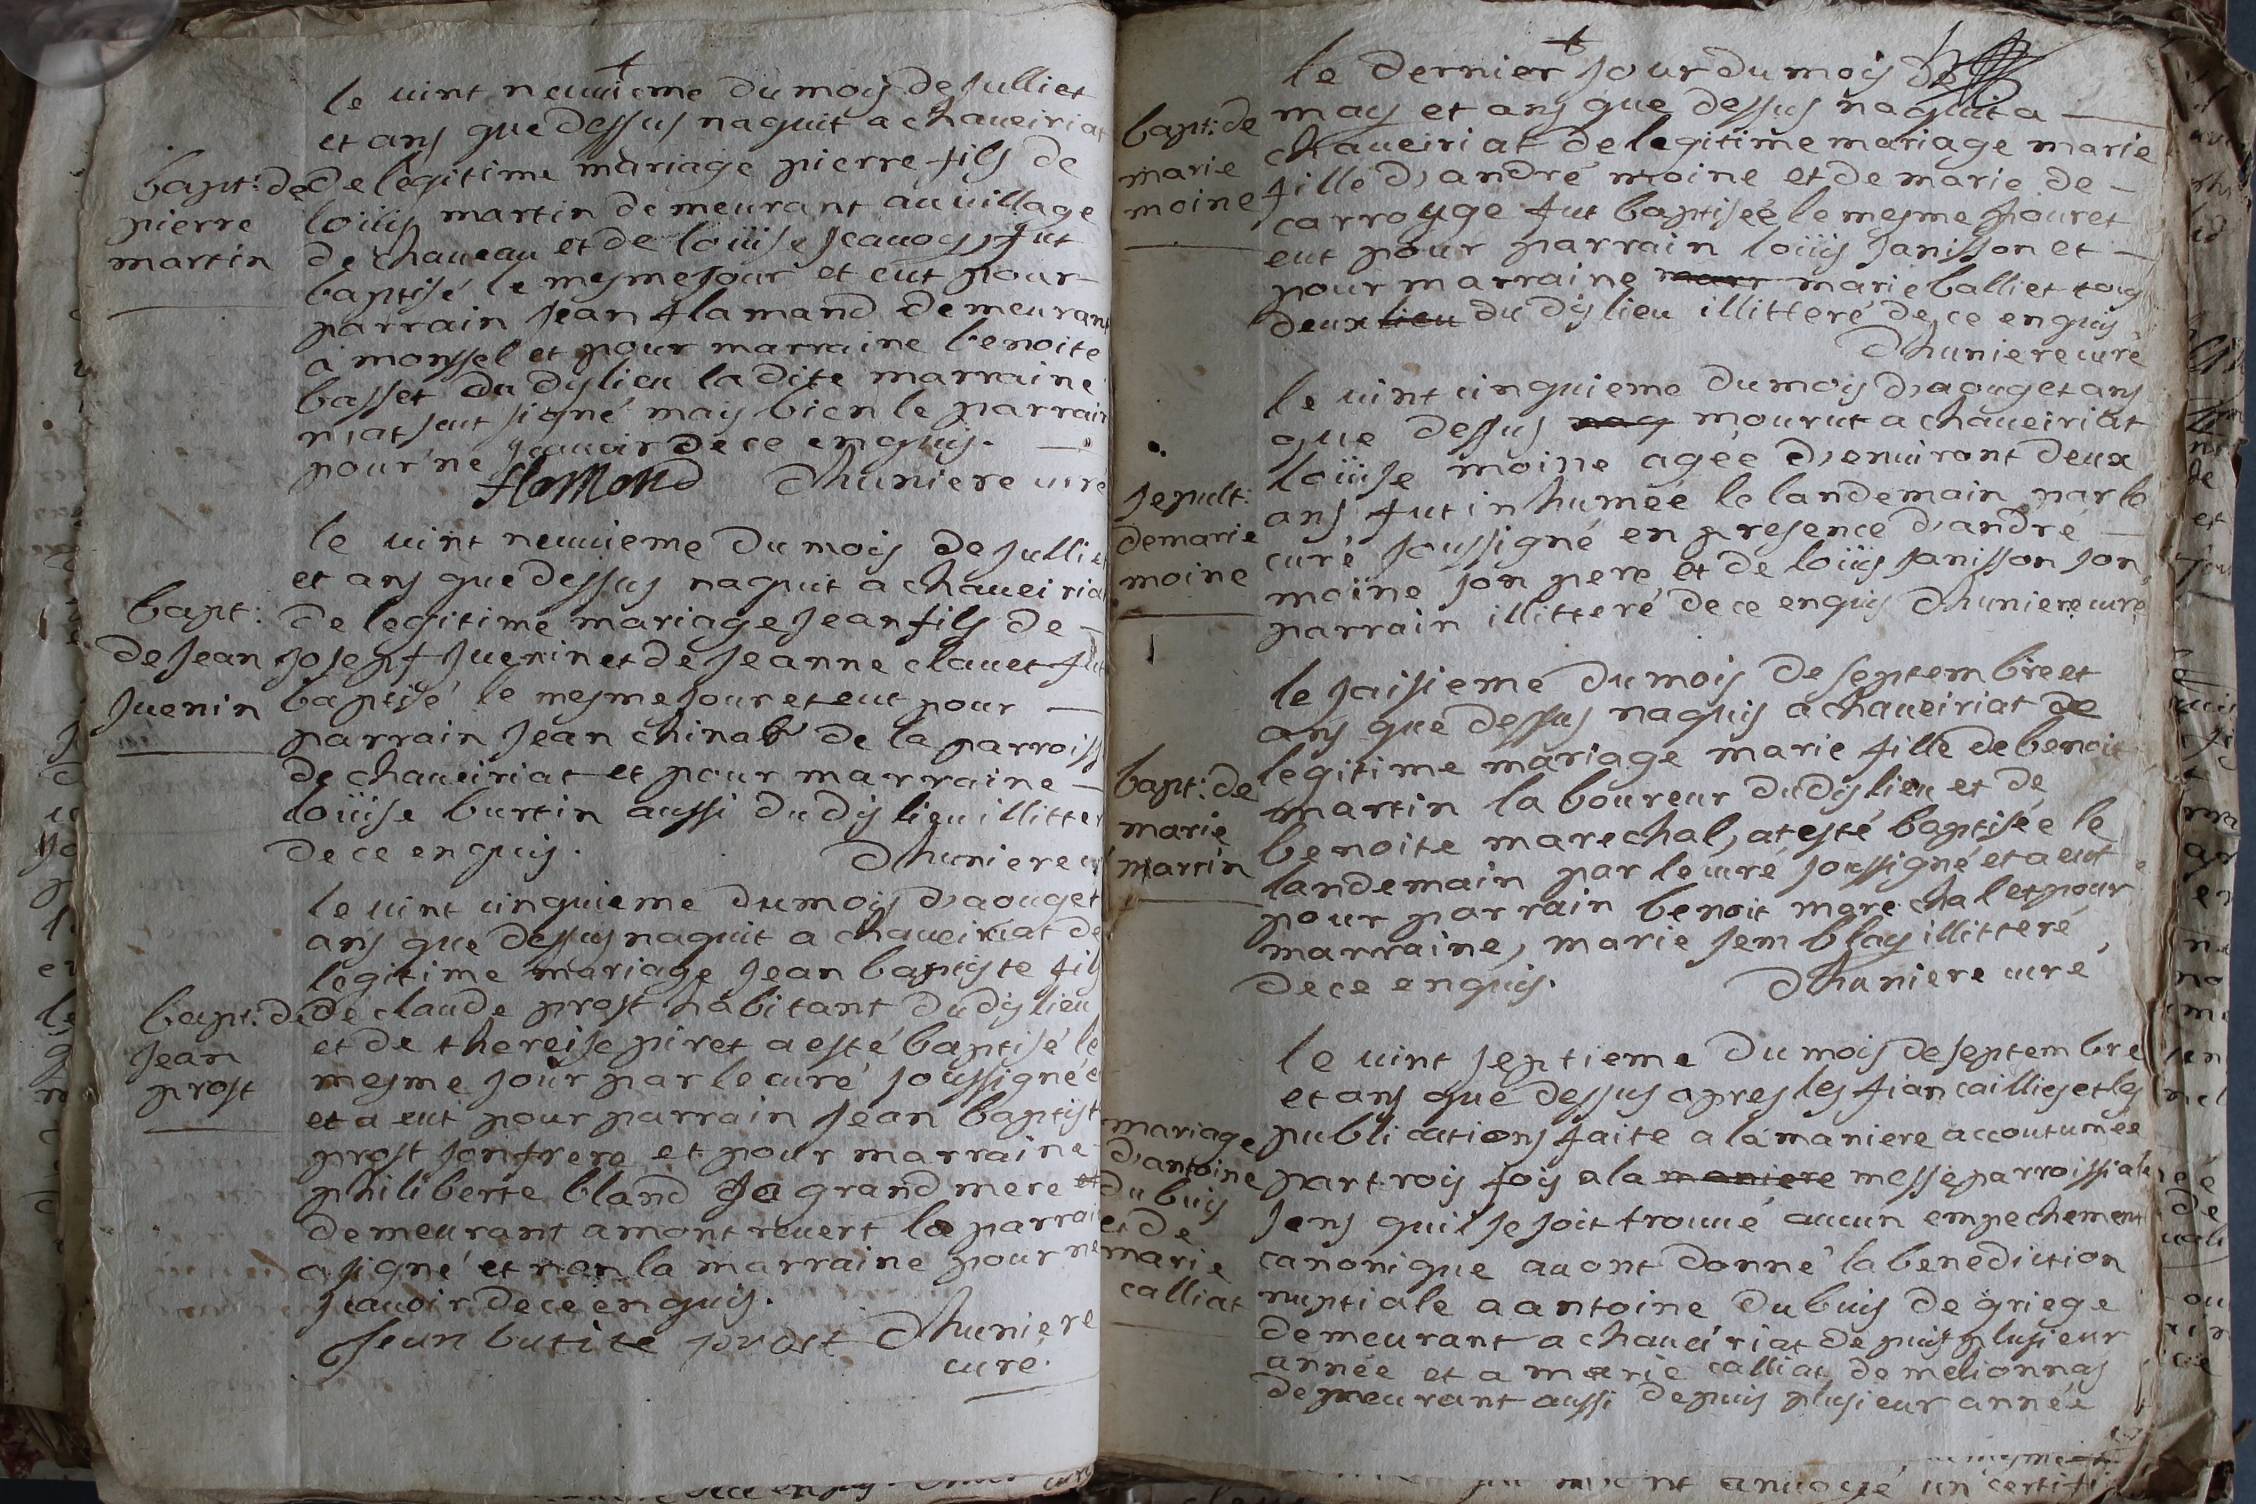 le uint neuuieme du mois de Julliet
et ans que dessus naquit a chaueiriat
bapt: de
pierre
martin
de legitime mariage pierre fils de
loüis martin demeurant au uillage
de chaueau et de loüise Jcauoy, fut
baptisé le mesme Jour et eut pour
parrain Jean flamand demeurant
a monssel et pour marraine benoite
basset du dis lieu la dite marraine
n'at seut signé mais bien le parrain
pour ne scauoir de ce enquis.
flaMand dhuniere curé
le uint neuuieme du mois de Jullie
et ans que dessus naquit a chaueiria
bapt:
de Jean
Juenin
de legitime mariage Jean fils de
Josept Juenin et de Jeanne clauet fut
baptisé le mesme Jour et eut pour
parrain Jean chinar de la parroiss
de chaueiriat et pour marraine
loüise burtin aussi du dis lieu illitter
de ce enquis. dhuniere cu
le uint cinquieme du mois d'aouget
ans que dessus naquit a chaueiriat de
legitime mariage Jean baptiste fils
bapt: de
Jean
prost
de claude prost habitant du dis lieu
et de thereise piret a esté baptisé le
mesme Jour par le curé soussigné e
et a eut pour parrain Jean baptist
prost son frere et pour marraine
philiberte bland sa grand mere et
demeurant a mont reuert le parrai
a signé et non la marraine pour ne
scauoir de ce enquis.
Jean batite prost dhuniere
curé.
le dernier Jour du mois de
bapt: de
marie
moine
may et ans que dessus naquit a
chaueiriat de legitime mariage marie
fille d'andré moine et de marie de
carroyge fut baptisée le mesme Jour et
eut pour parrain loüis Janisson et
pour marraine marr marie balliet tous
deux lieu du dis lieu illitteré de ce enquis
dhuniere curé
le uint cinquieme du mois d'aouget ans
que dessus naq mourut a chaueiriat
sepult:
de marie
moine
loüise moine agée d'enuiront deux
ans fut inhumée le landemain par le
curé soussigné en presence d'andré
moine son pere et de loüis Janisson son
parrain illitteré de ce enquis dhuniere curé
le saisieme du mois de septembre et
ans que dessus naquis a chaueiriat de
bapt: de
marie
martin
legitime mariage marie fille de benoit
martin laboureur du dis lieu et de
benoite marechal, at esté baptisée le
landemain par le curé soussigné et a eut
pour parrain benoit marechal et pour
marraine, marie semblay illitteré
de ce enquis. dhuniere curé
le uint septieme du mois de septembre
et ans que dessus apres les fiancaillies et les
mariage
d'antoine
dubuis
et de
marie
calliat
publications faite a la maniere accoutumée
par trois fois a la maniere messe parroissiale
sens quil se soit trouué aucun empechement
canonique auont donné la benediction
nuptiale a antoine dubuis de griege
demeurant a chaueiriat depuis plusieur
année et a marie calliat de melionnas
demeurant aussi depuis plusieur année
anuoyé un certifi